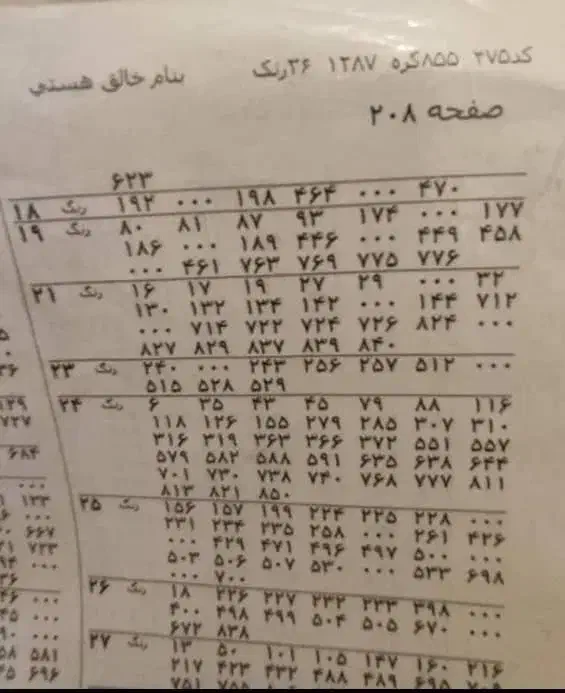 کد۲۷۵ ۸۵۵گره ۱۳۸۷ ۳۶رنگ بنام خالق هستي
صفحه ۲۰۸
۶۲۳
۱۸ رنگ ۱۹۲ ۰۰۰ ۱۹۸ ۴۶۴ ۰۰۰ ۴۷۰
۱۹ رنگ ۸۰ ۸۱ ۸۷ ۹۳ ۱۷۴ ۰۰۰ ۱۷۷
۱۸۶ ۰۰۰ ۱۸۹ ۴۴۶ ۰۰۰ ۴۴۹ ۴۵۸
۰۰۰ ۴۶۱ ۷۶۳ ۷۶۹ ۷۷۵ ۷۷۶
۲۱ رنگ ۱۶ ۱۷ ۱۹ ۲۷ ۲۹ ۰۰۰ ۳۲
۱۳۰ ۱۳۲ ۱۳۴ ۱۴۲ ۰۰۰ ۱۴۴ ۷۱۲
۰۰۰ ۷۱۴ ۷۲۲ ۷۲۴ ۷۲۶ ۸۲۴ ۰۰۰
۸۲۷ ۸۲۹ ۸۳۷ ۸۳۹ ۸۴۰
۲۳ رنگ ۲۴۰ ۰۰۰ ۲۴۳ ۲۵۶ ۲۵۷ ۵۱۲ ۰۰۰
۵۱۵ ۵۲۸ ۵۲۹
۲۴ رنگ ۶ ۳۵ ۴۳ ۴۵ ۷۹ ۸۸ ۱۱۶
۱۱۸ ۱۲۶ ۱۵۵ ۲۷۹ ۲۸۵ ۳۰۷ ۳۱۰
۳۱۶ ۳۱۹ ۳۶۳ ۳۶۶ ۳۷۲ ۵۵۱ ۵۵۷
۵۷۹ ۵۸۲ ۵۸۸ ۵۹۱ ۶۳۵ ۶۳۸ ۶۴۴
۷۰۱ ۷۳۰ ۷۳۸ ۷۴۰ ۷۶۸ ۷۷۷ ۸۱۱
۸۱۳ ۸۲۱ ۸۵۰
۲۵ رنگ ۱۵۶ ۱۵۷ ۱۹۹ ۲۲۴ ۲۲۵ ۲۲۸ ۰۰۰
۲۳۱ ۲۳۴ ۲۳۵ ۲۵۸ ۰۰۰ ۲۶۱ ۴۲۶
۰۰۰ ۴۲۹ ۴۷۱ ۴۹۶ ۴۹۷ ۵۰۰ ۰۰۰
۵۰۳ ۵۰۶ ۵۰۷ ۵۳۰ ۰۰۰ ۵۳۳ ۶۹۸
۰۰۰ ۷۰۰
۲۶ رنگ ۱۸ ۲۲۶ ۲۲۷ ۲۳۲ ۲۳۳ ۳۹۸ ۰۰۰
۴۰۰ ۴۹۸ ۴۹۹ ۵۰۴ ۵۰۵ ۶۷۰ ۰۰۰
۶۷۲ ۸۳۸
۲۷ رنگ ۱۳ ۵۰ ۱۰۱ ۱۰۵ ۱۴۷ ۱۶۰ ۲۱۶
۲۱۷ ۴۲۳ ۴۳۲ ۴۸۸ ۴۸۹ ۶۹۵
۷۵۱